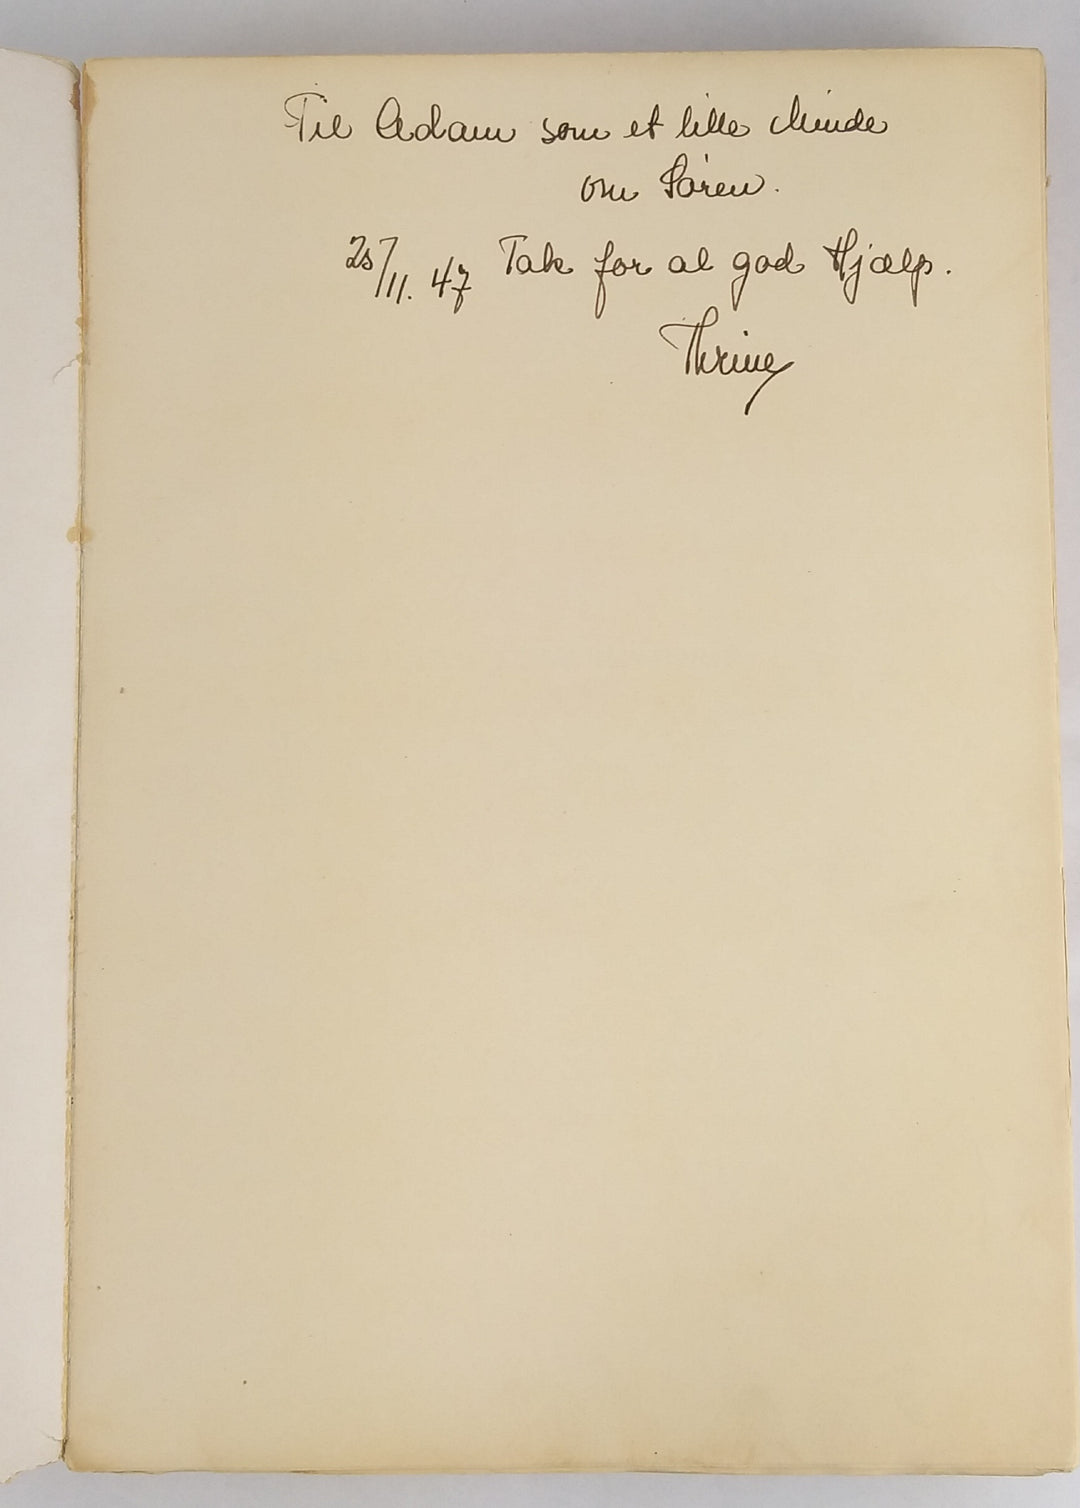 Til Adam som et lille Minde
om Søren.
25/11. 47 Tak for al god Hjælp.
Thrine